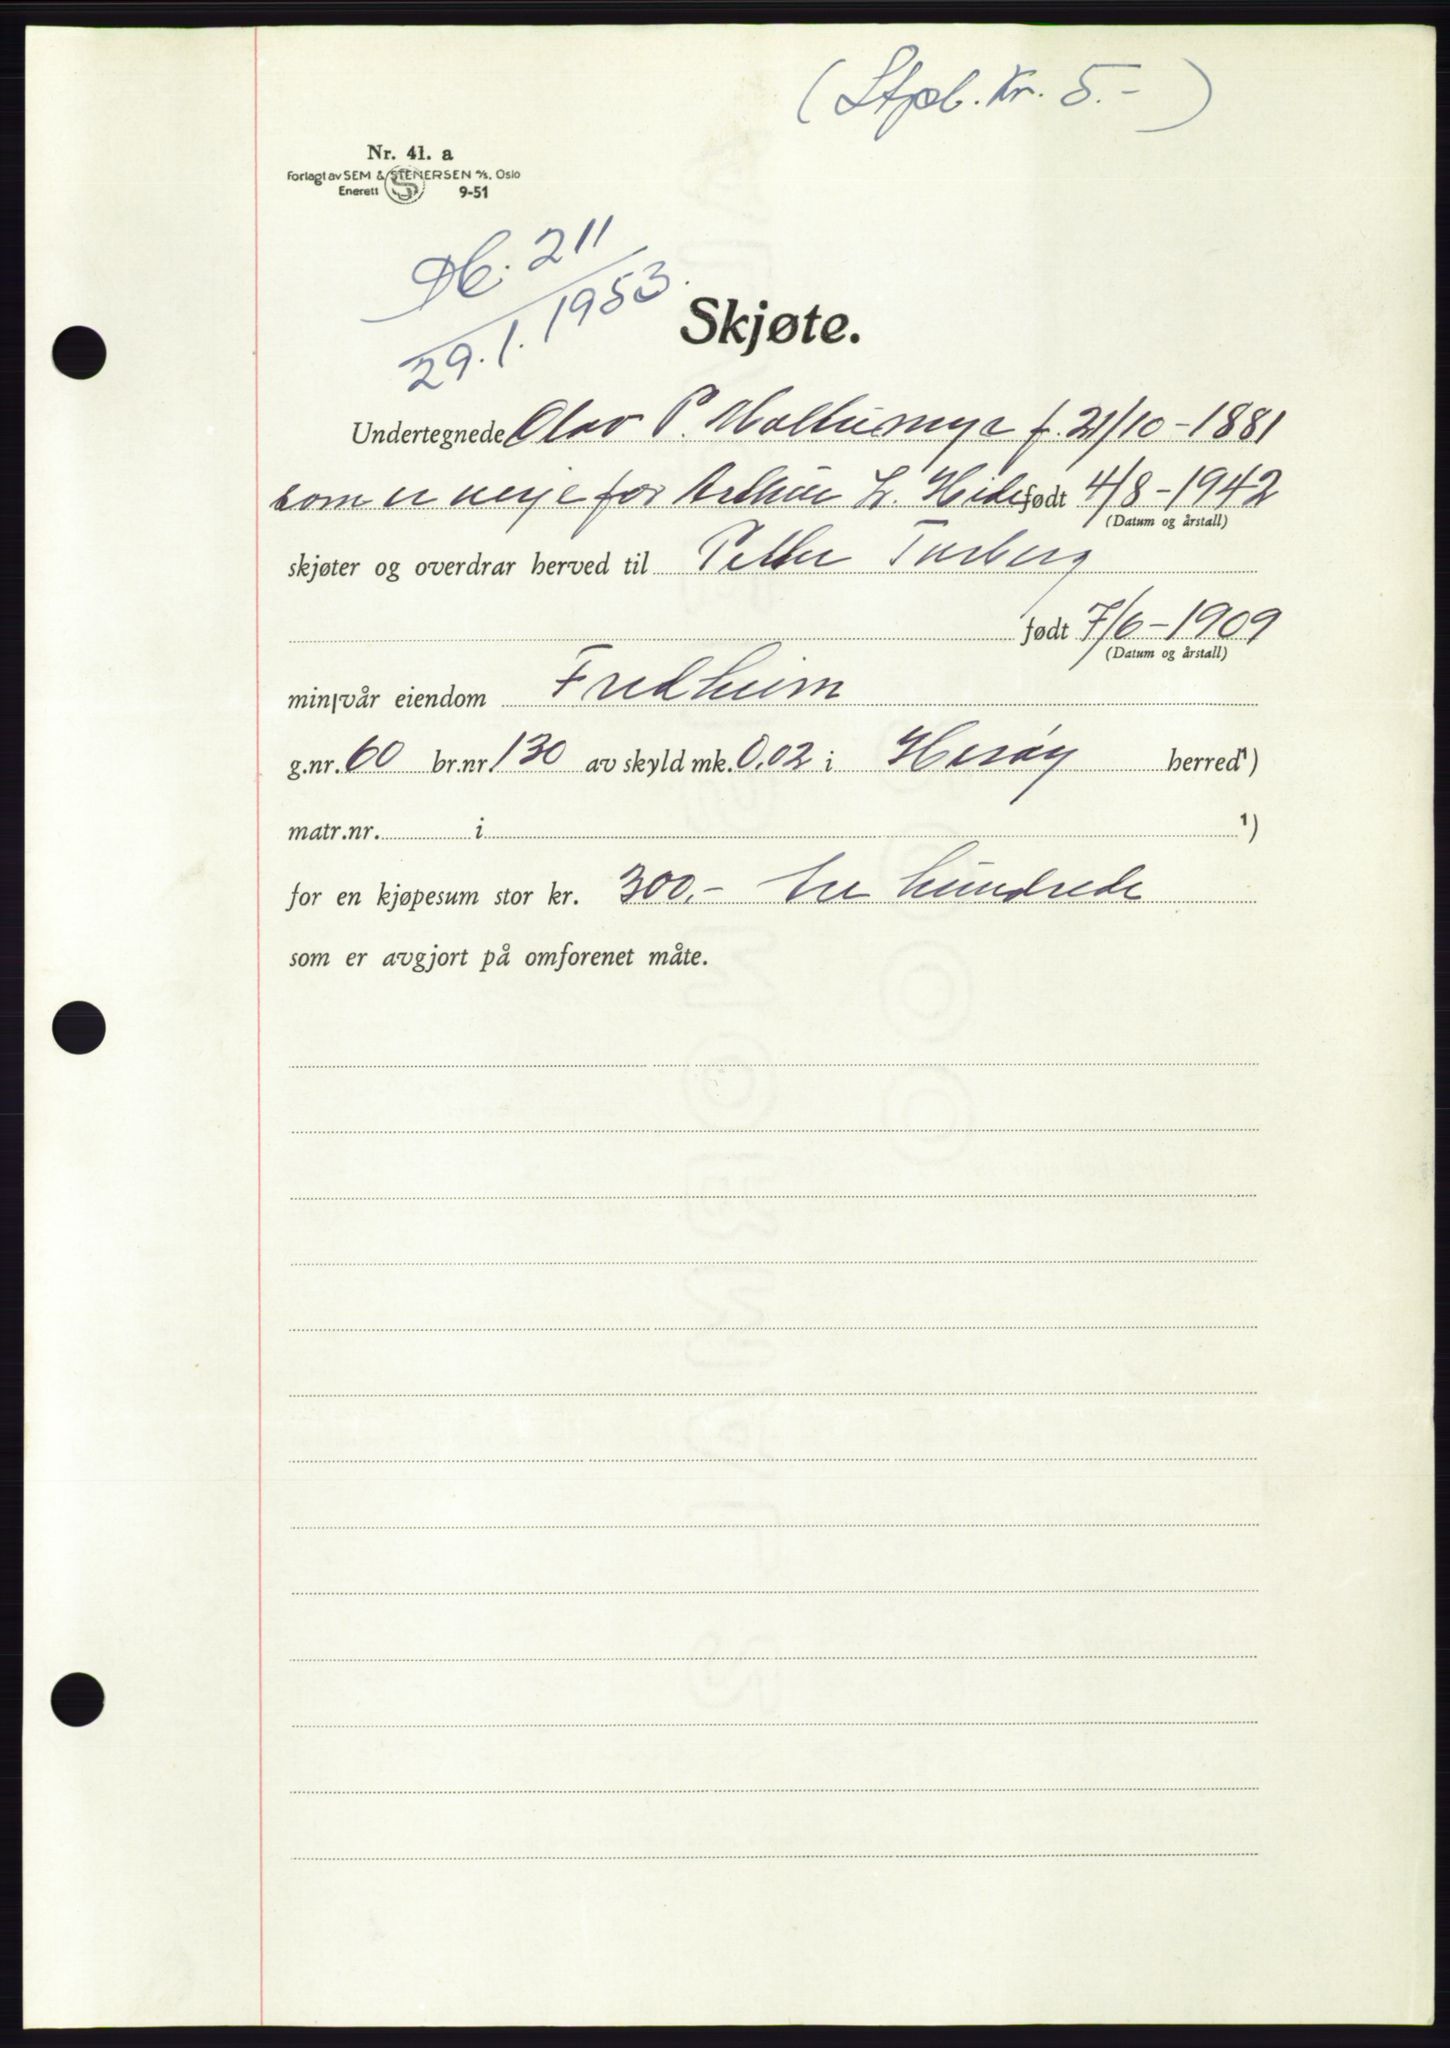 (Stpl. Kr. 5.-)
Nr. 41. a
Forlagt av SEM & STENERSEN A/S, Oslo
Enerett S 9-51
Db. 211
29.1.1953.
Skjøte.
Undertegnede Olav P. f. 21/10-1881
som verje for Arthur L. Heide født 4/8-1942
(Datum og årstall)
skjøter og overdrar herved til Petter Furberg
født 7/6-1909
(Datum og årstall)
min/vår eiendom Fredheim
g.nr. 60 br.nr. 130 av skyld mk. 0,02 i Herøy herred 1)
matr.nr. i 1)
for en kjøpesum stor kr. 300.- tre hundrede
som er avgjort på omforenet måte.